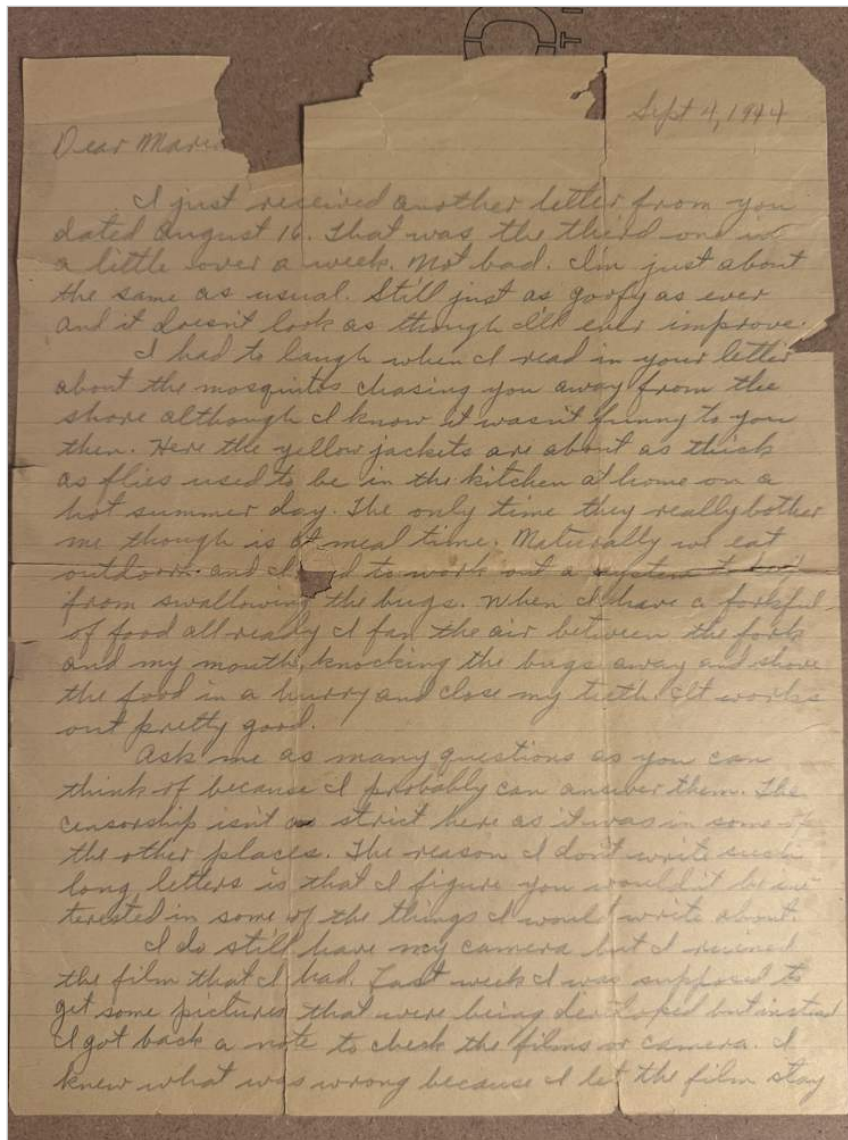 Sept 4, 1944
Dear Marie
I just received another letter from you
dated August 16. That was the third one in
a little over a week. Not bad. I'm just about
the same as usual. Still just as goofy as ever
and it doesn't look as though I'll ever improve.
I had to laugh when I read in your letter
about the mosquitos chasing you away from the
shore although I know it wasn't funny to you
then. Here the yellow jackets are about as thick
as flies used to be in the kitchen at home on a
hot summer day. The only time they really bother
me though is at meal time. Naturally we eat
outdoors and I to work out a system to
from swallowing the bugs. When I have a forkful
of food all ready I fan the air between the fork
and my mouth, knocking the bugs away and shove
the food in a hurry and close my teeth. It works
out pretty good.
Ask me as many questions as you can
think of because I probably can answer them. The
censorship isn't as strict here as it was in some of
the other places. The reason I don't write such
long letters is that I figure you wouldn't be in-
terested in some of the things I would write about.
I do still have my camera but I ruined
the film that I had. Last week I was supposed to
get some pictures that were being developed but instead
I got back a note to check the films or camera. I
knew what was wrong because I let the film stay